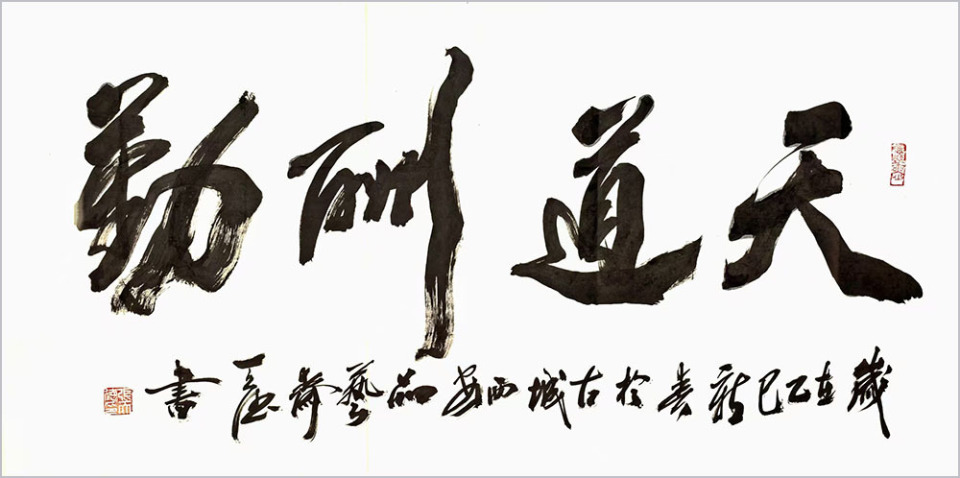 天道酬勤
歲在乙巳新春於古城西安品藝齋書